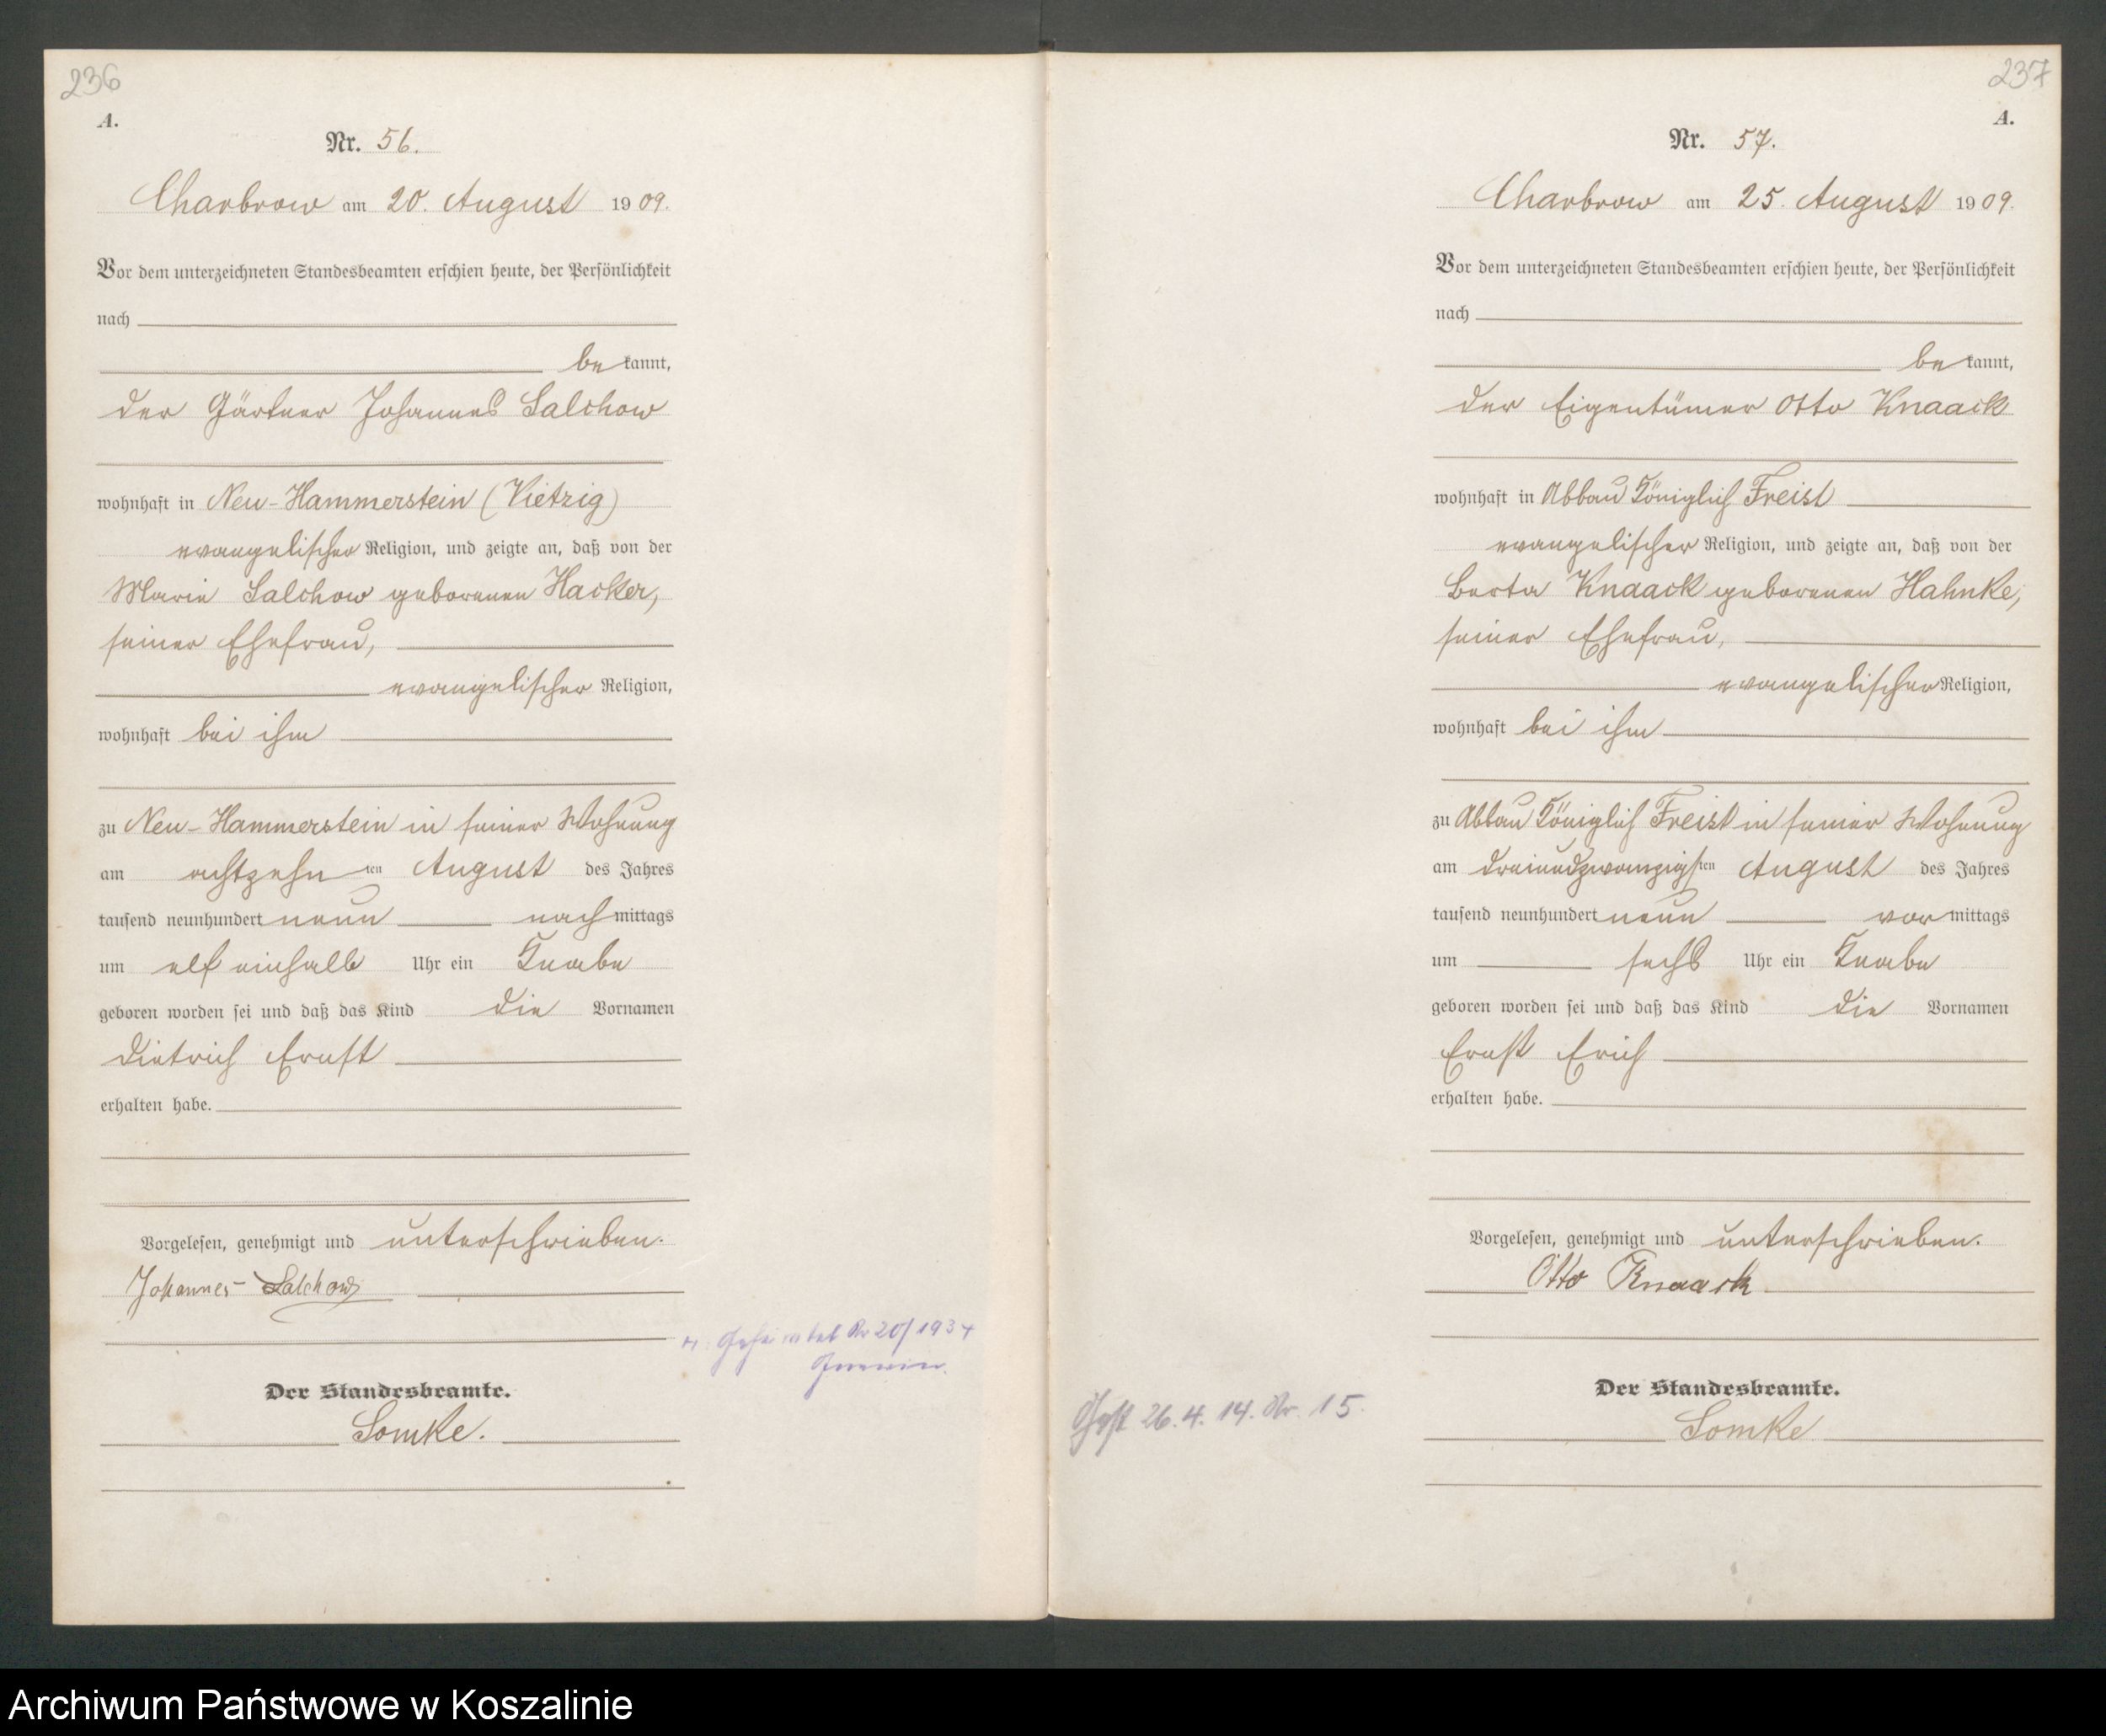 236
A.
Nr. 56.
Charbrow am 20. August 1909.
Vor dem unterzeichneten Standesbeamten erschien heute, der Persönlichkeit
nach
bekannt,
der Gärtner Johannes Salchow
wohnhaft in Neu-Hammerstein (Vietzig)
evangelischer Religion, und zeigte an, daß von der
Marie Salchow geborenen Hacker,
seiner Ehefrau,
evangelischer Religion,
wohnhaft bei ihm
zu Neu-Hammerstein in seiner Wohnung
am achtzehnten August des Jahres
tausend neunhundert neun nachmittags
um elf einhalb Uhr ein Knabe
geboren worden sei und daß das Kind die Vornamen
Dietrich Ernst
erhalten habe.
Vorgelesen, genehmigt und unterschrieben.
Johannes Salchow
Geheiratet Nr 20/1934
Der Standesbeamte.
Somke.
237
A.
Nr. 57.
Charbrow am 25. August 1909.
Vor dem unterzeichneten Standesbeamten erschien heute, der Persönlichkeit
nach
bekannt,
der Eigentümer Otto Knaack
wohnhaft in Abbau Königlich Freist
evangelischer Religion, und zeigte an, daß von der
Berta Knaack geborenen Hahnke,
seiner Ehefrau,
evangelischer Religion,
wohnhaft bei ihm
zu Abbau Königlich Freist in seiner Wohnung
am dreiundzwanzigsten August des Jahres
tausend neunhundert neun vormittags
um sechs Uhr ein Knabe
geboren worden sei und daß das Kind die Vornamen
Ernst Erich
erhalten habe.
Vorgelesen, genehmigt und unterschrieben.
Otto Knaack
26.4.14. Nr. 15.
Der Standesbeamte.
Somke
Archiwum Państwowe w Koszalinie